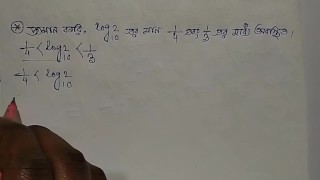 * প্রমাণ করি, log₁₀2 এর মান 1/4 এবং 1/3 এর মধ্যে অবস্থিত।
1/4 < log₁₀2 < 1/3
1/4 < log₁₀2